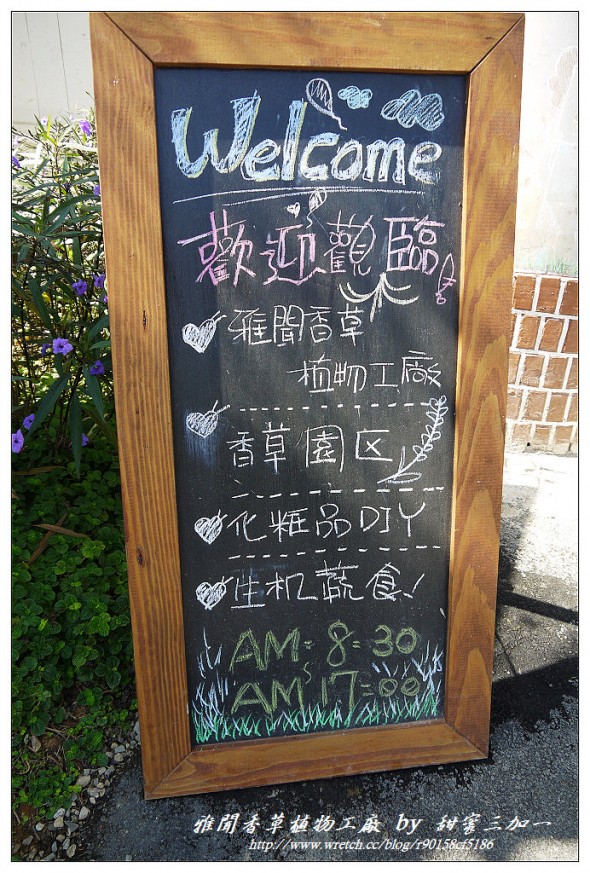 Welcome
歡迎觀臨
雅聞香草
植物工廠
香草園区
化粧品DIY
生机蔬食!
AM:8:30
AM17:00
雅聞香草植物工廠 by 甜蜜三加一
http://www.wretch.cc/blog/r90158cf5186